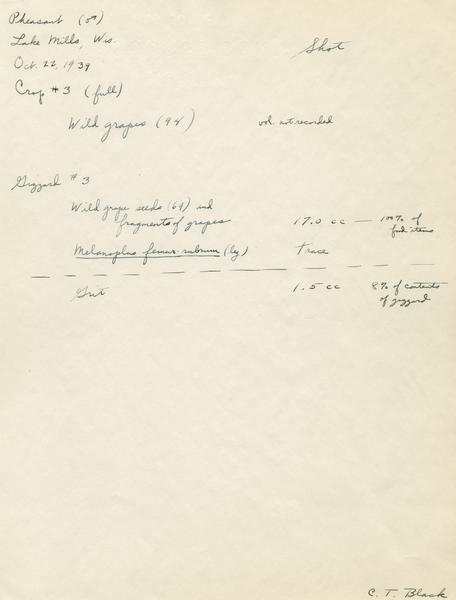 Pheasant (♂)
Lake Mills, Wis. Shot
Oct. 22, 1939
Crop #3 (full)
Wild grapes (98) vol. not recorded
Gizzard #3
Wild grape seeds (69) and
fragments of grapes 17.0 cc — 100% of
food items
Melanoplus femur-rubrum (leg) Trace
Grit 1.5 cc 8% of contents
of gizzard
C. T. Black